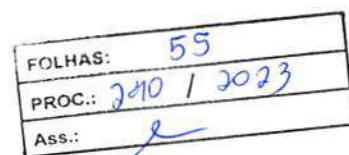 FOLHAS: 55
PROC.: 240 / 2023
Ass.: